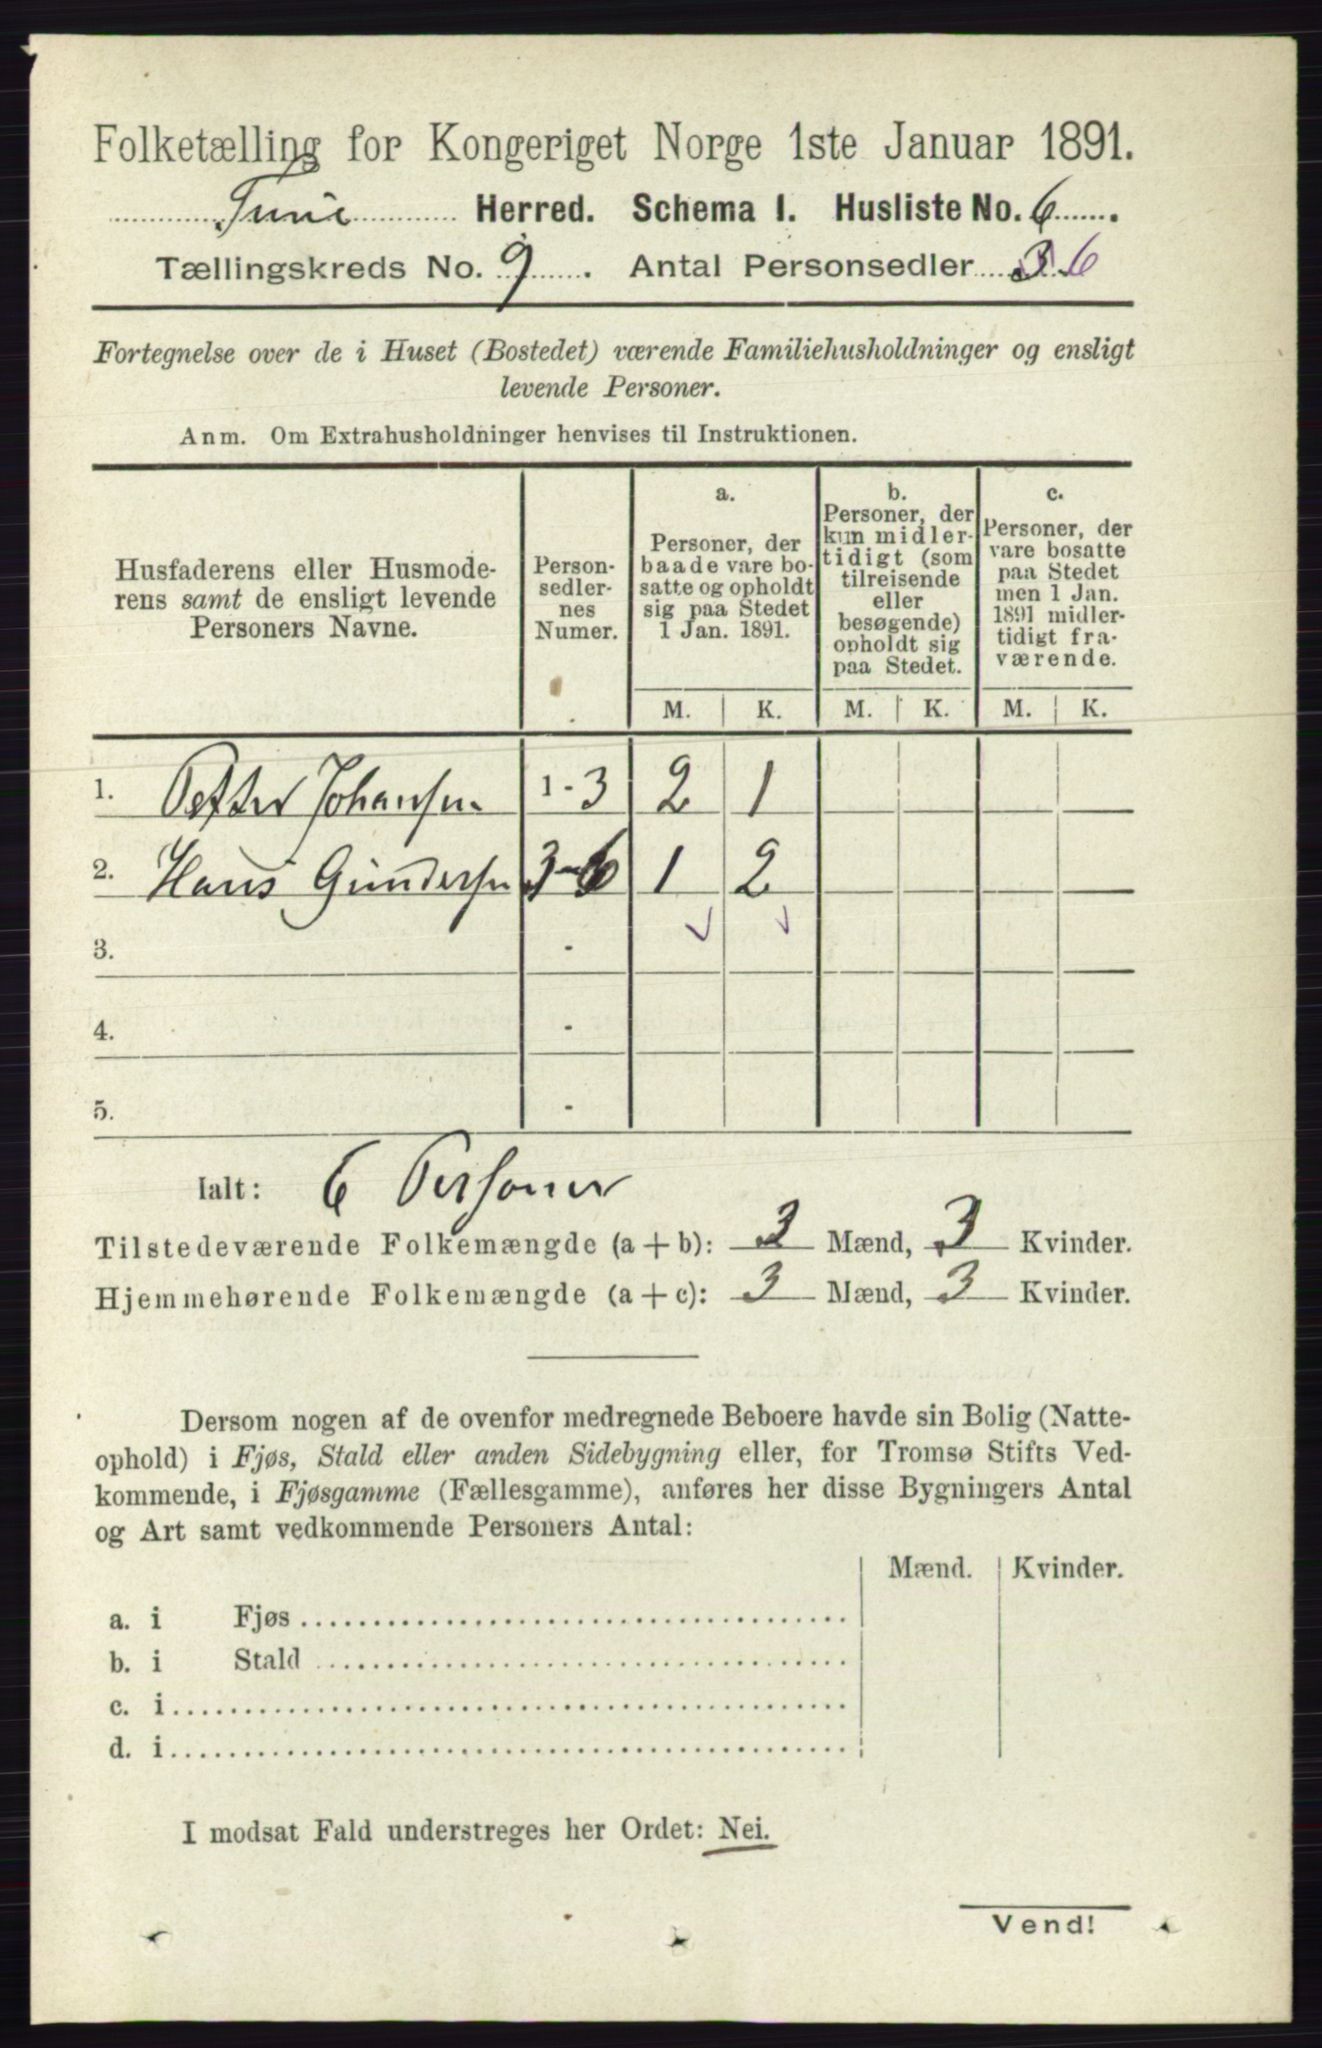 Folketælling for Kongeriget Norge 1ste Januar 1891.
Tune Herred. Schema I. Husliste No. 6
Tællingskreds No. 9. Antal Personsedler 3 6
Fortegnelse over de i Huset (Bostedet) værende Familiehusholdninger og ensligt
levende Personer.
Anm. Om Extrahusholdninger henvises til Instruktionen.
Husfaderens eller Husmode-
rens samt de ensligt levende
Personers Navne.
Person-
sedler-
nes
Numer.
a.
Personer, der
baade vare bo-
satte og opholdt
sig paa Stedet
1 Jan. 1891.
b.
Personer, der
kun midler-
tidigt (som
tilreisende
eller
besøgende)
opholdt sig
paa Stedet.
c.
Personer, der
vare bosatte
paa Stedet
men 1 Jan.
1891 midler-
tidigt fra-
værende.
M. K. M. K. M. K.
1. Petter Johansen 1-3 2 1
2. Hans Gundersen 3-6 1 2
3. -
4. -
5. -
Ialt: 6 Personer
Tilstedeværende Folkemængde (a + b): 3 Mænd, 3 Kvinder.
Hjemmehørende Folkemængde (a + c): 3 Mænd, 3 Kvinder.
Dersom nogen af de ovenfor medregnede Beboere havde sin Bolig (Natte-
ophold) i Fjøs, Stald eller anden Sidebygning eller, for Tromsø Stifts Ved-
kommende, i Fjøsgamme (Fællesgamme), anføres her disse Bygningers Antal
og Art samt vedkommende Personers Antal:
Mænd. Kvinder.
a. i Fjøs
b. i Stald
c. i
d. i
I modsat Fald understreges her Ordet: Nei.
Vend!